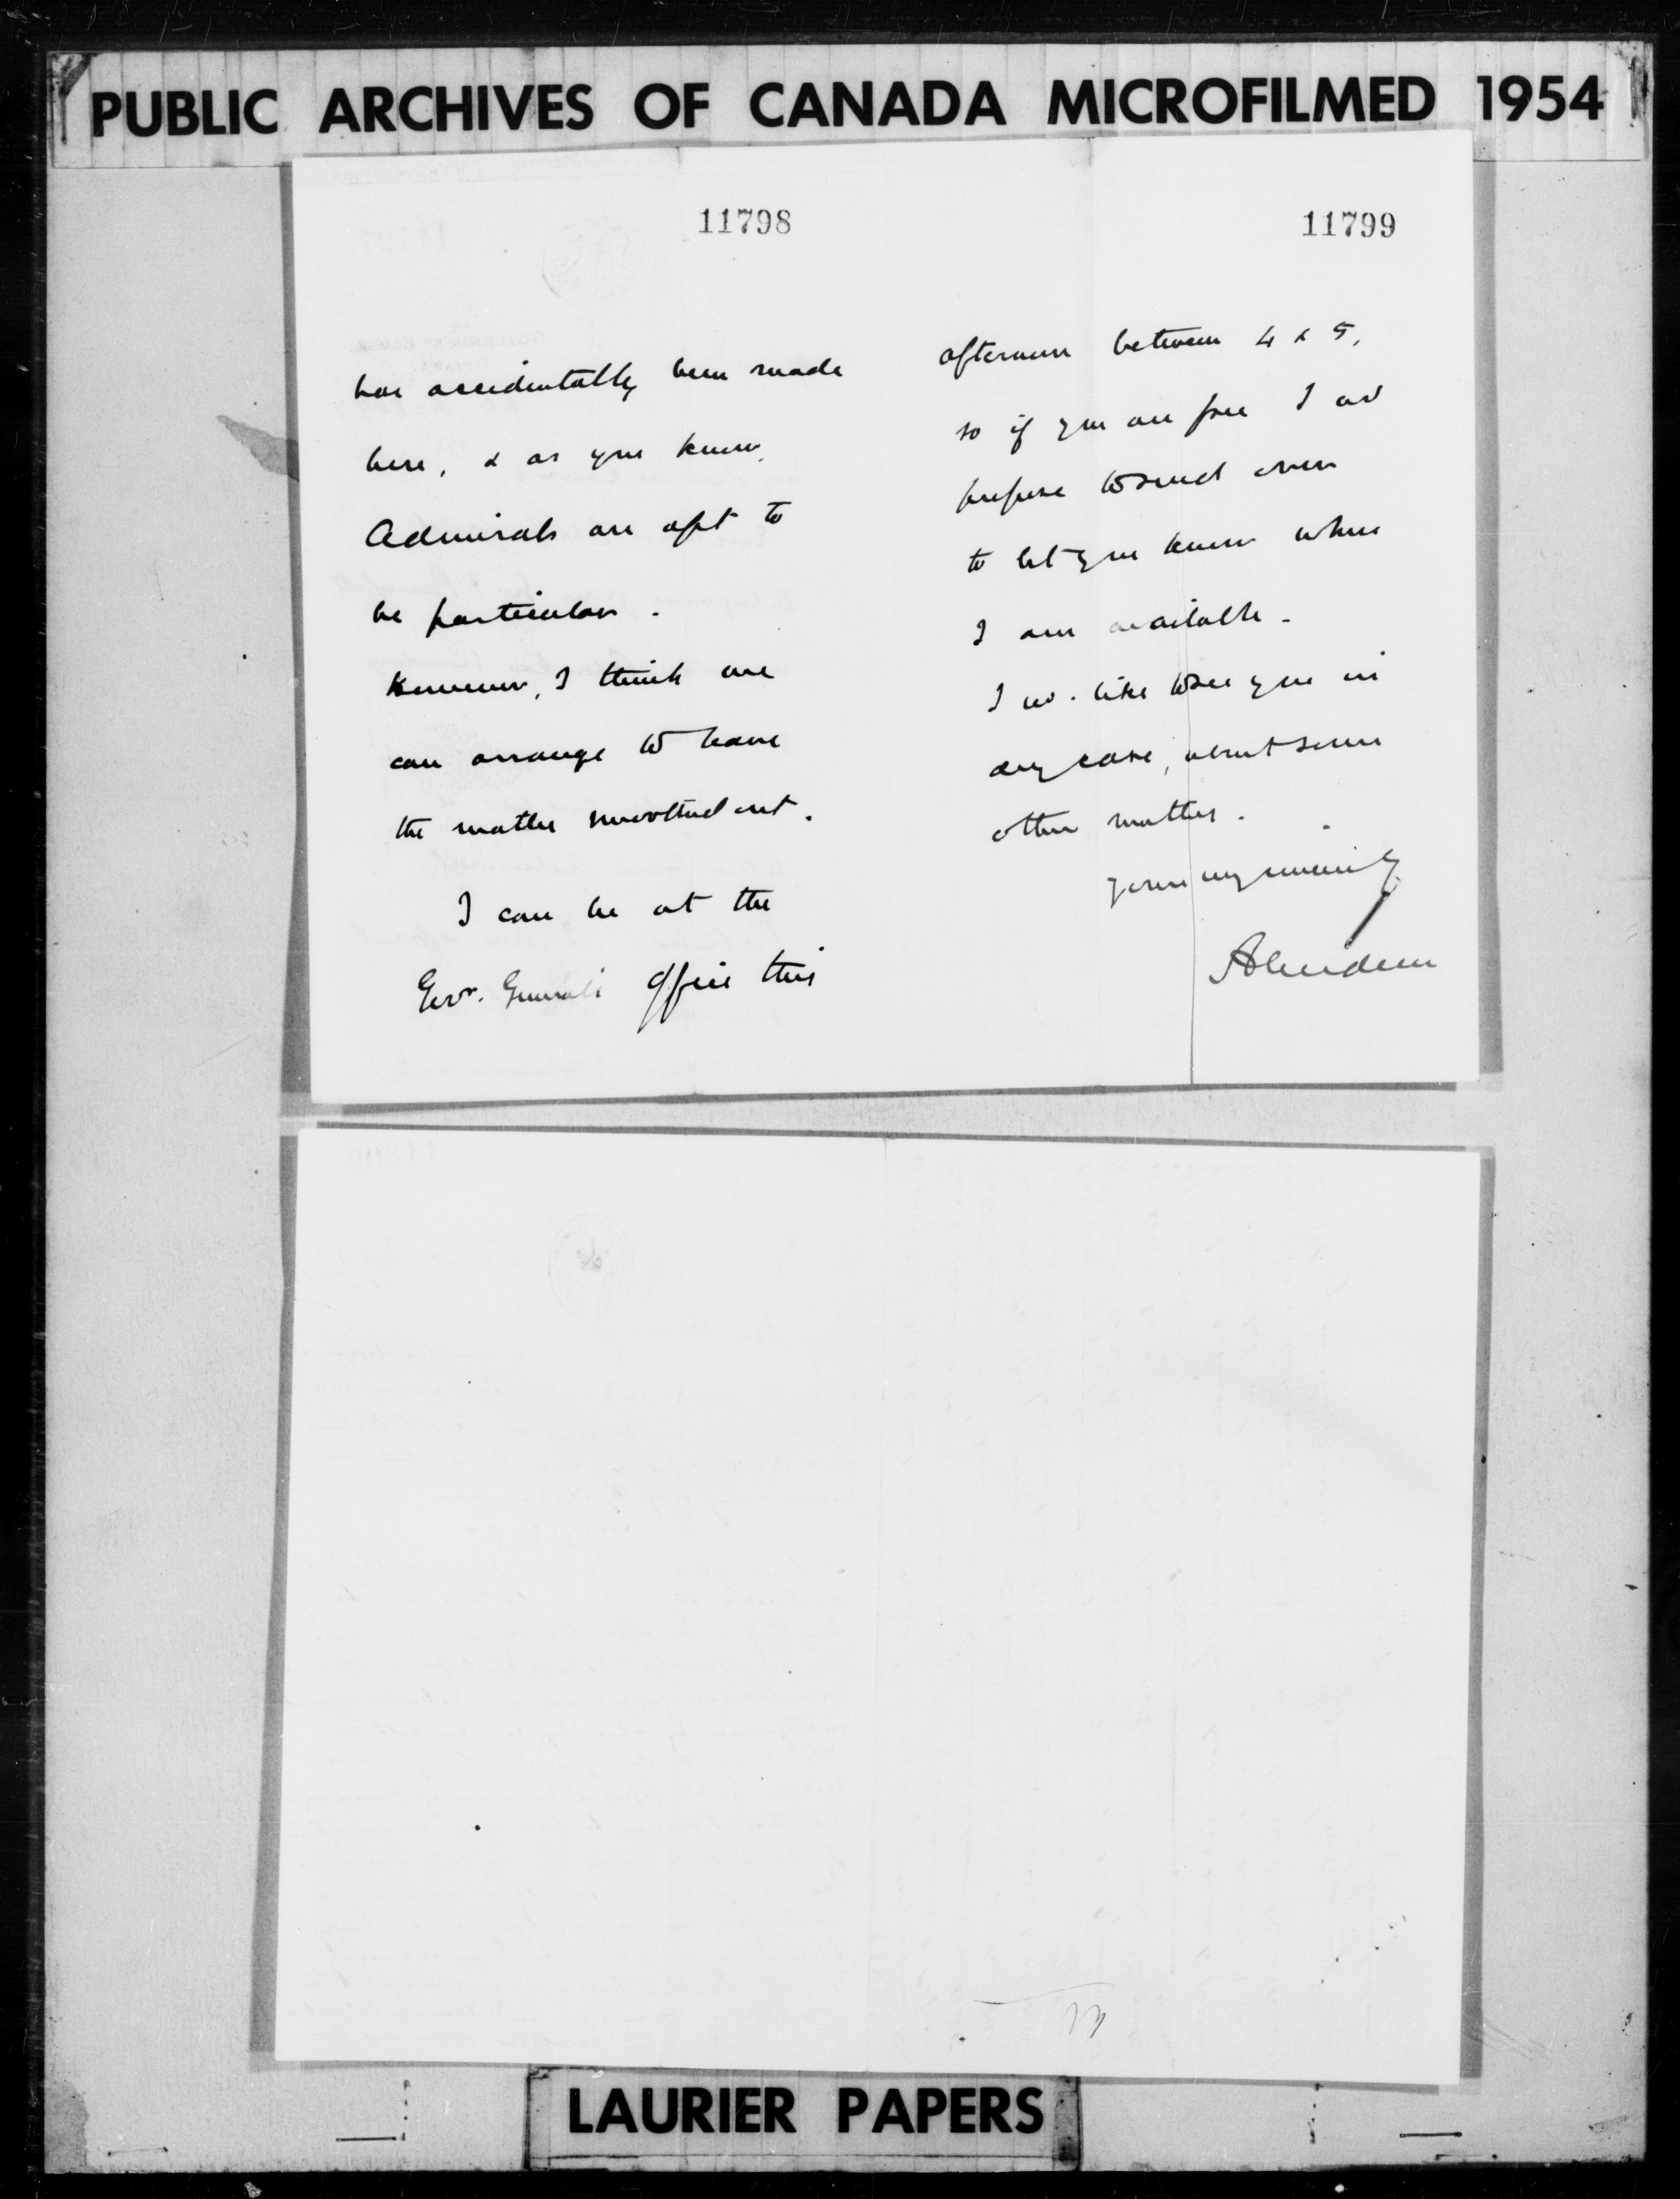 PUBLIC ARCHIVES OF CANADA MICROFILMED 1954
11798
has accidentally been made
here, & as you know,
Admirals are apt to
be particular.
However, I think we
can arrange to have
the matter smoothed out.
I can be at the
Govr. General's Office this
11799
afternoon between 4 & 5,
so if you are free I wd
propose to send over
to let you know when
I am available.
I wd. like to see you in
any case, about some
other matters.
Yours very sincerely
Aberdeen
LAURIER PAPERS